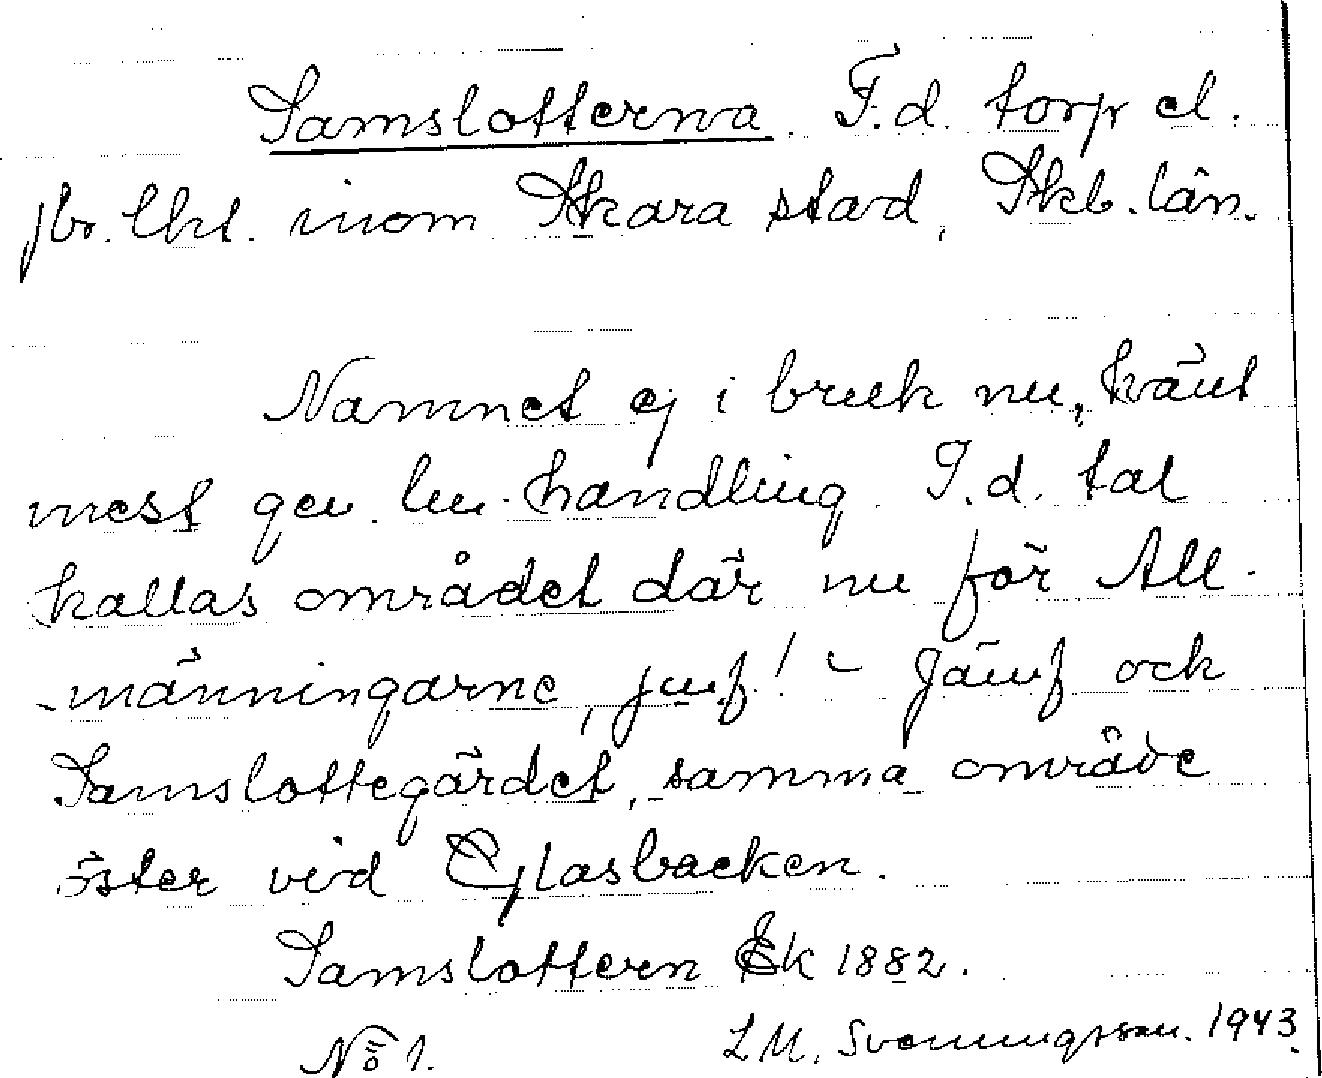 Samslotterna. F.d. torp el.
jbr. lht. inom Skara stad, Skb. län.
Namnet ej i bruk nu, känt
mest gen. lm. handling. I d. tal
kallas området där nu för All-
männingarne, jmf! - Jämf ock
Samslottegärdet, samma område
öster vid Glasbacken.
Samslottern Ek 1882.
No 1.
L M. Svenungsson. 1943.